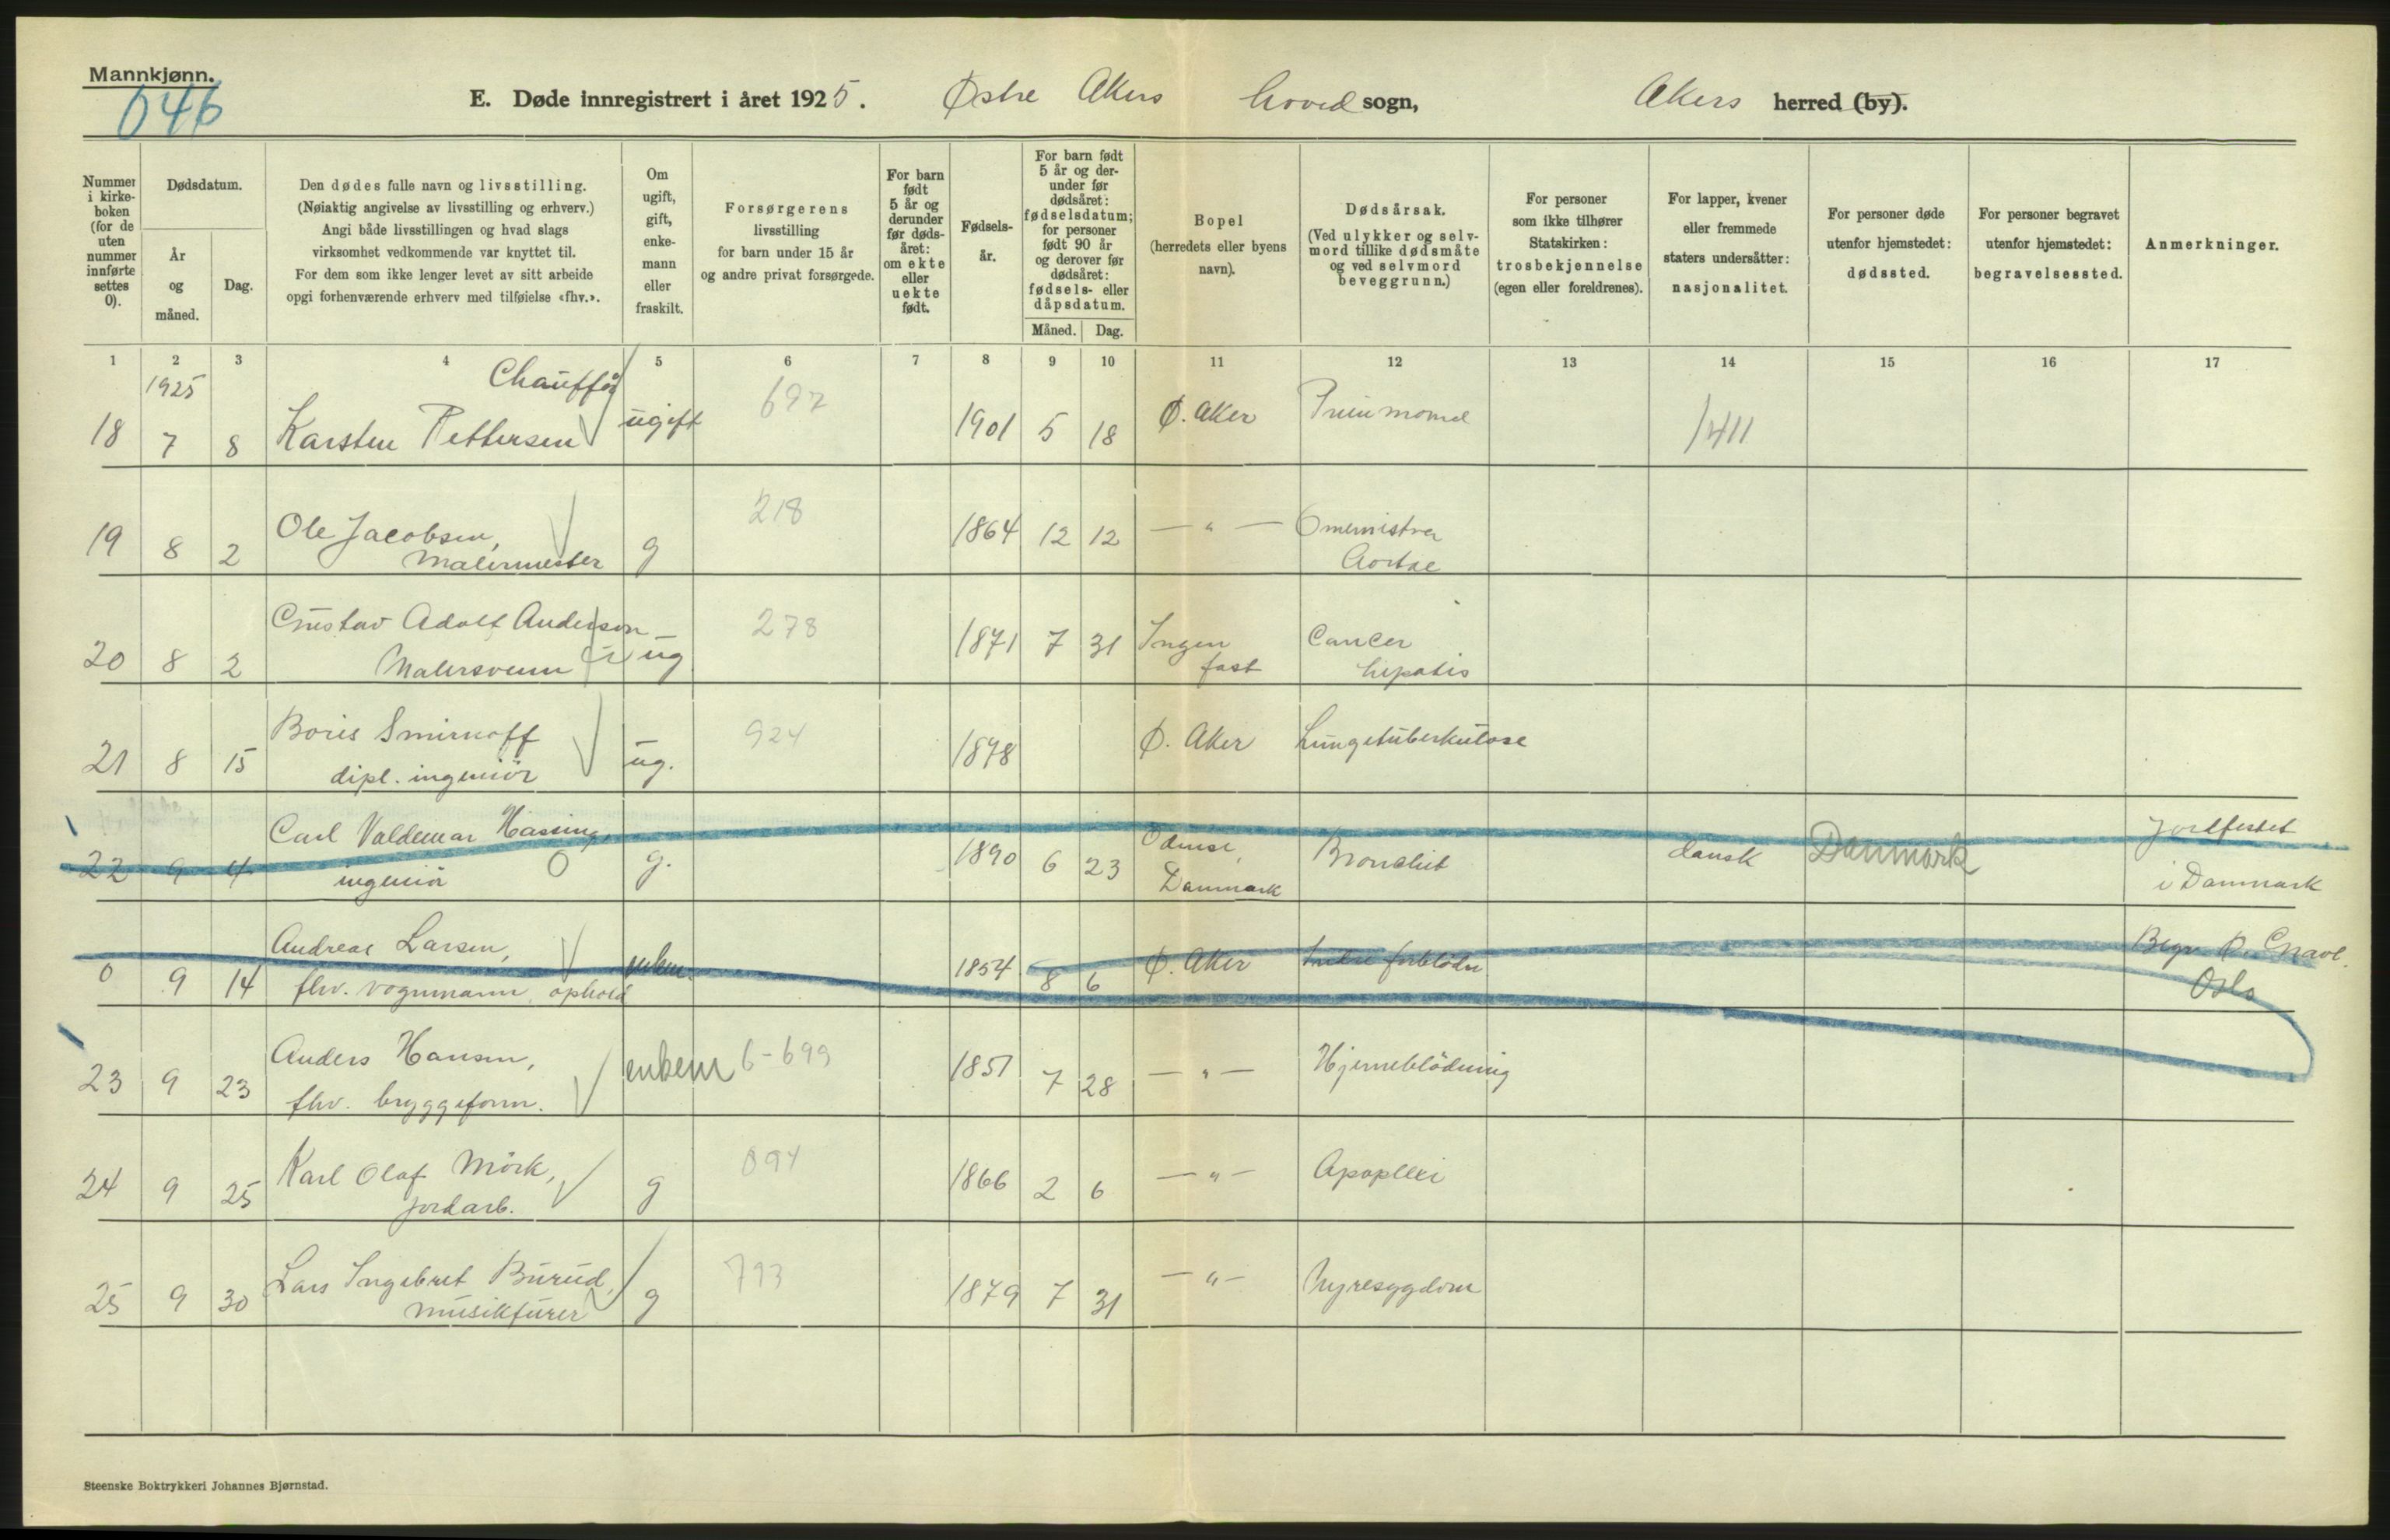 Mannkjønn.
046
E. Døde innregistrert i året 1925. Østre Akers hovedsogn, Akers herred (by).
Nummer i kirke- boken (for de uten nummer innførte settes 0).
Dødsdatum.
År og måned.
Dag.
Den dødes fulle navn og livsstilling.
(Nøiaktig angivelse av livsstilling og erhverv.)
Angi både livsstillingen og hvad slags
virksomhet vedkommende var knyttet til.
For dem som ikke lenger levet av sitt arbeide
opgi forhenværende erhverv med tilføielse «fhv.».
Om ugift, gift, enke- mann eller fraskilt.
Forsørgerens
livsstilling
for barn under 15 år
og andre privat forsørgede.
For barn født 5 år og derunder før døds- året: om ekte eller uekte født.
Fødsels- år.
For barn født 5 år og der- under før dødsåret: fødselsdatum; for personer født 90 år og derover før dødsåret: fødsels- eller dåpsdatum.
Måned. Dag.
Bopel
(herredets eller byens
navn).
Dødsårsak.
(Ved ulykker og selv-
mord tillike dødsmåte
og ved selvmord
beveggrunn.)
For personer
som ikke tilhører
Statskirken:
trosbekjennelse
(egen eller foreldrenes).
For lapper, kvener
eller fremmede
staters undersåtter:
nasjonalitet.
For personer døde
utenfor hjemstedet:
dødssted.
For personer begravet
utenfor hjemstedet:
begravelsessted.
Anmerkninger.
1 2 3 4 5 6 7 8 9 10 11 12 13 14 15 16 17
1925 Chauffør
18 7 8 Karsten Pettersen ugift 697 1901 5 18 Ø. Aker 1411
19 8 2 Ole Jacobsen, g 218 1864 12 12 — " —
Malermester Aortae
20 8 2 Gustav Adolf Anderson ug 278 1871 7 31 Ingen Cancer
Malersvenn fast hepatis
21 8 15 Boris Smirnoff ug. 924 1898 Ø. Aker Lungetuberkulose
dipl. ingeniör
22 9 4 Carl Valdemar Hassing, g. 1890 6 23 Odense, dansk Danmark Jordfestet
ingeniör O Danmark i Danmark
0 9 14 Andreas Larsen, enkem. 1854 8 6 Ø. Aker Indre forblödn Begr.
fhv. vognmann, ophold Oslo
23 9 23 Anders Hansen, enkem 6-699 1851 7 28 — " — Hjerneblödning
fhv. bryggeform.
24 9 25 Karl Olaf Mörk, g 894 1866 2 6 — " — Apoplexi
jordarb.
25 9 30 Lars Ingebret Burud, g 793 1879 7 31 — " — Nyresygdom
musikfurer
Steenske Boktrykkeri Johannes Bjørnstad.